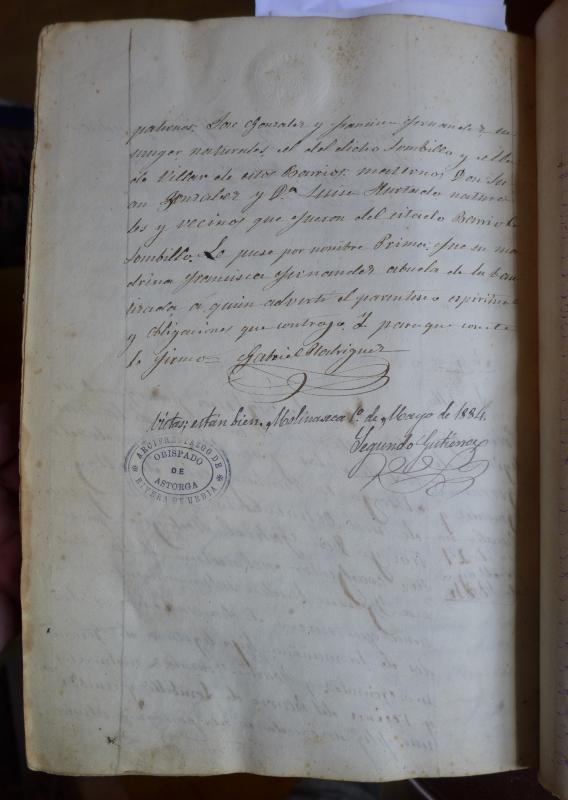 paternos, José Gonzalez y Francisca Fernandez su
muger naturales el del dicho Lombillo y ella
de Villar de estos Barrios: maternos Don Ju-
an Gonzalez y D.ª Luisa Hurtado natura-
les y vecinos que fueron del citado Barrio de
Lombillo. Le puse por nombre Primo: fue su ma-
drina Francisca Fernandez abuela de la bau-
tizada a quien adverti el parentesco espiritual
y obligaciones que contrajo. Y para que conste
lo firmo Gabriel Rodriguez
Vistas; están bien. Molinaseca 1º de Mayo de 1884.
Segundo Gutierrez
ARCIPRESTAZGO DE
OBISPADO
DE
ASTORGA
RIVERA DE URBIA